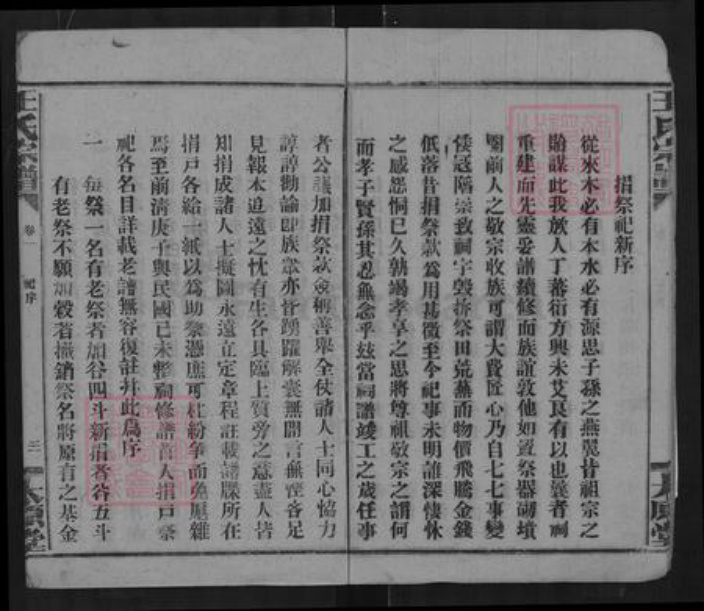 王氏宗譜
太原堂
捐祭祀新序
從來木必有本水必有源思子孫之燕翼皆祖宗之
貽謀此我族人丁蕃衍方興未艾良有以也曩者祠
重建而先靈妥譜續修而族誼敦他如置祭器砌墳
塋前人之敬宗收族可謂大費匠心乃自七七事變
倭寇階祟致祠宇毀拆祭田荒蕪而物價飛騰金錢
低落昔捐祭款為用甚微至今祀事未明誰深悽怵
之感怨恫已久孰竭孝享之思將尊祖敬宗之謂何
而孝子賢孫其忍無念乎玆當祠譜竣工之歲任事
者公議加捐祭款僉稱善舉全仗諸人士同心恊力
諄諄勸諭即族衆亦皆踴躍解囊無間言無慳吝足
見報本追遠之忱有生各具臨上質旁之意盡人皆
知捐成諸人士擬圖永遠宜定章程註載譜牒所在
捐戶各給一紙以為助祭憑庶可杜紛爭而免厖雜
焉至前清庚子與民國己未整祠修譜晋人捐戶祭
祀各名目詳載老譜無容復註幷此為序
一 每祭一名有老祭者加谷四斗新捐者谷五斗
有老祭不願加穀者撤銷祭名將原有之基金
王氏宗譜
卷一
祀序
三
太原堂